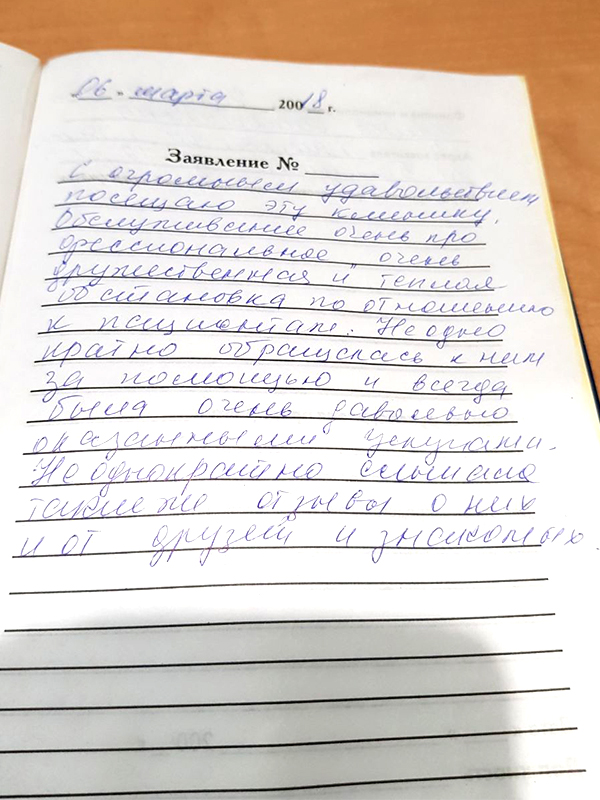 06. марта 20018 г.
Заявление № ______
С огромным удавольствием
посещаю эту клинику.
Обслуживание очень про
фессиональное, очень
дружественная и теплая
обстановка по отношению
к пациентам. Неодно
кратно обращалась к ним
за помощью и всегда
была очень давольна
оказанными услугами.
Не однократно слышала
такие же отзывы о них
и от друзей и знакомых